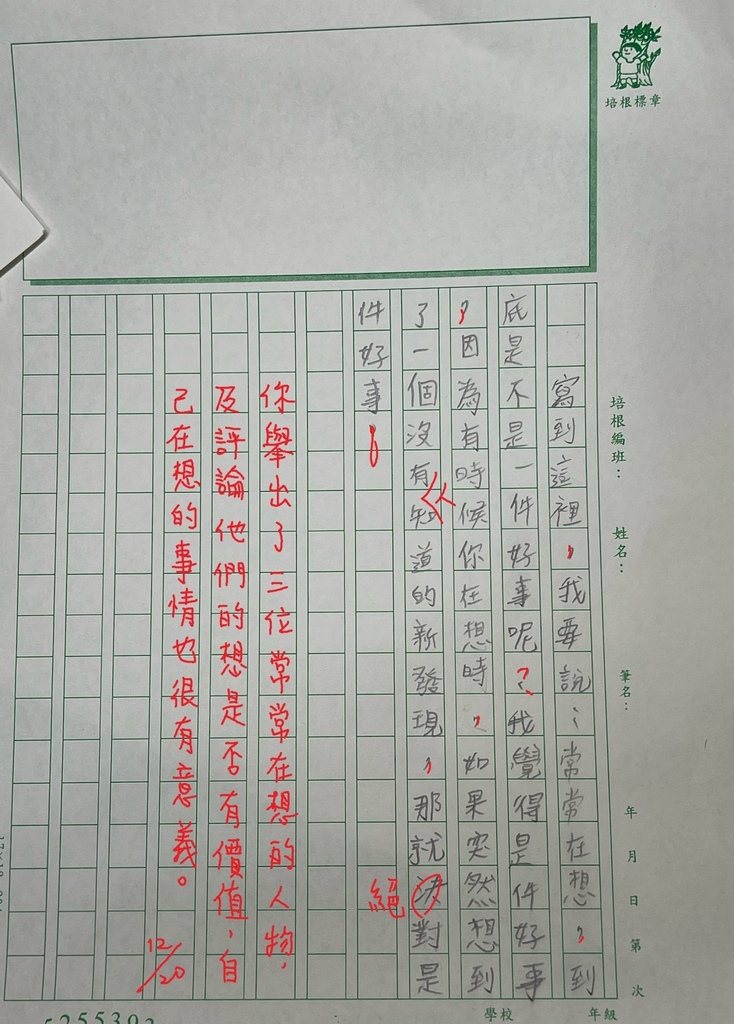 培根標章
培根編班：
姓名：
筆名：
年 月 日 第 次
寫到這裡，我要說：常常在想，到
底是不是一件好事呢？我覺得是件好事
，因為有時候你在想時，如果突然想到
了一個沒有知道的新發現，那就決對是
人
絕
件好事！
你舉出了三位常常在想的人物，
及評論他們的想是否有價值，自
己在想的事情也很有意義。
12/20
學校
年級